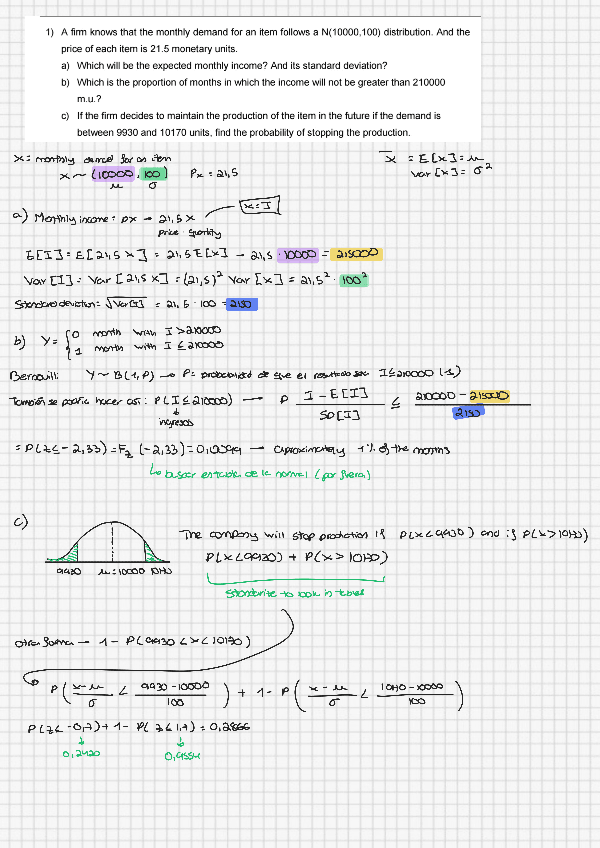 1) A firm knows that the monthly demand for an item follows a N(10000,100) distribution. And the
price of each item is 21.5 monetary units.
a) Which will be the expected monthly income? And its standard deviation?
b) Which is the proportion of months in which the income will not be greater than 210000
m.u.?
c) If the firm decides to maintain the production of the item in the future if the demand is
between 9930 and 10170 units, find the probability of stopping the production.
X = monthly demand for an item
X ~ (10000, 100) Px = 21,5
μ σ
x̄ = E[x] = μ
Var[x] = σ²
a) Monthly income: px → 21,5 x
x = I
price quantity
E[I] = E[21,5 x] = 21,5 E[x] → 21,5 · 10000 = 215000
Var[I] = Var[21,5 x] = (21,5)² Var[x] = 21,5² · 100²
Standard deviation: √Var[I] = 21,5 · 100 = 2150
b) Y = { 0 month with I > 210000
1 month with I ≤ 210000
Bernouilli: Y ~ B(1, P) → P = probabilidad de que el resultado sea I ≤ 210000 (1)
También se podría hacer así: P(I ≤ 210000) → P (I - E[I]) / SD[I] ≤ (210000 - 215000) / 2150
ingresos
= P(z ≤ -2,33) = Fz (-2,33) = 0,0099 → aproximately 1% of the months
↳ buscar en tabla de la normal (por fuera)
c)
9930 μ = 10000 10170
The company will stop production if P(x < 9930) and if P(x > 10170)
P(x < 9930) + P(x > 10170)
standarize to look in tables
otra forma → 1 - P(9930 < x < 10170)
P( (x - μ)/σ < (9930 - 10000)/100 ) + 1 - P( (x - μ)/σ < (10170 - 10000)/100 )
P(z < -0,7) + 1 - P(z ≤ 1,7) = 0,2866
0,2420 0,9554